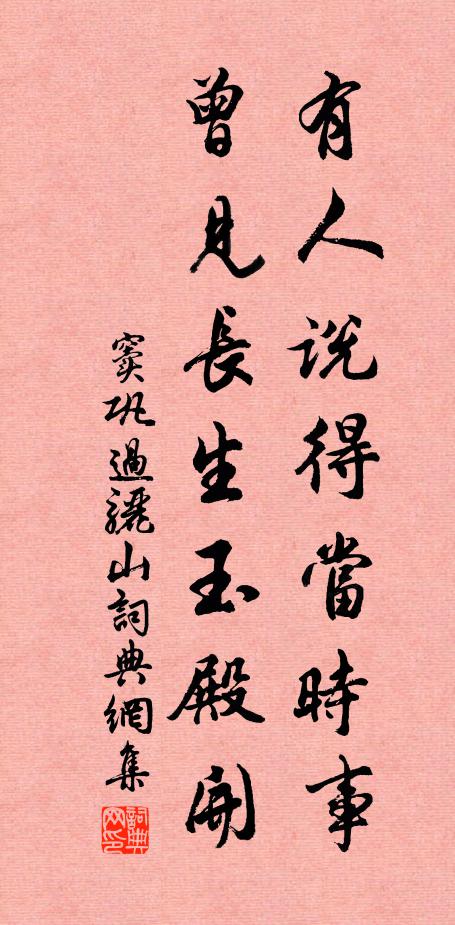 有人說得當時事
曾見長生玉殿開
竇巩過驪山詞典網集
詞典网印